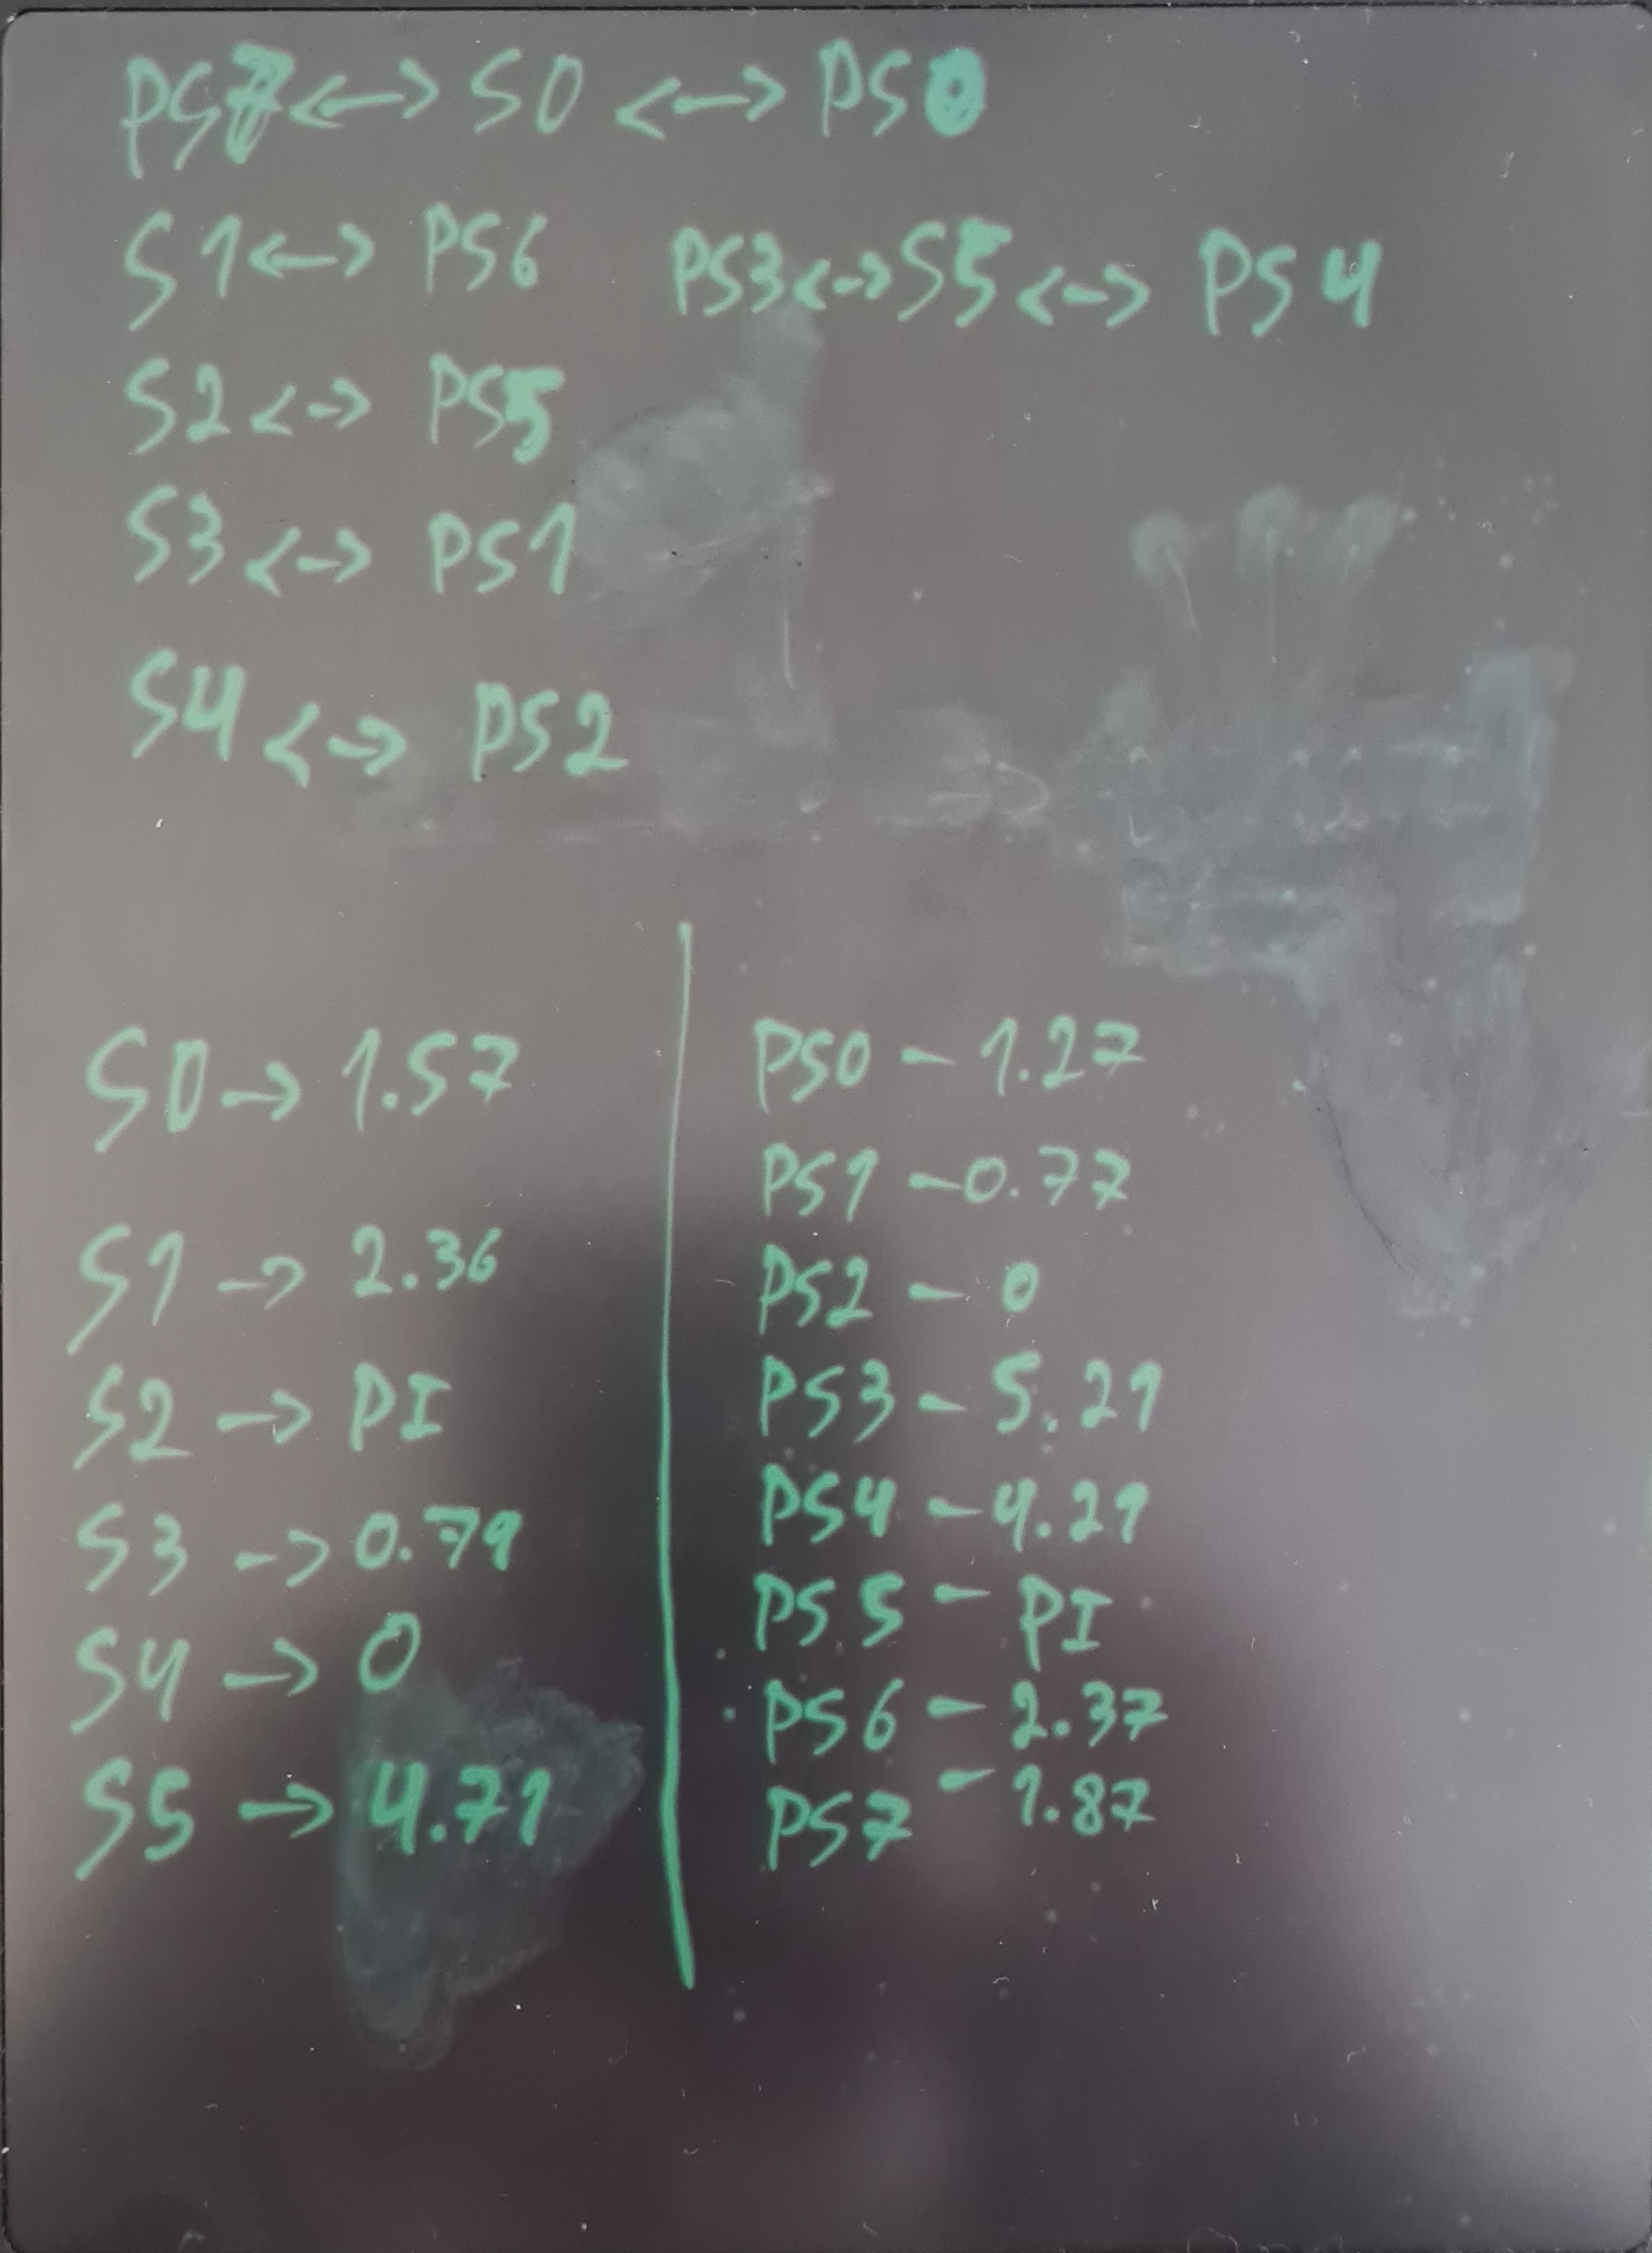 PS7<->S0<->PS0
S1<-> PS6
PS3<->S5<-> PS4
S2<-> PS5
S3<-> PS1
S4<-> PS2
S0-> 1.57
S1-> 2.36
S2-> PI
S3->0.79
S4-> 0
S5->4.71
PS0 - 1.27
PS1 -0.77
PS2 - 0
PS3 - 5.21
PS4 -4.21
PS5 - PI
PS6 - 2.37
PS7 - 1.87